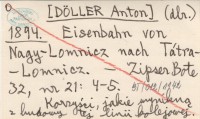 [DÖLLER Anton] (dr.)
1894. Eisenbahn von
Nagy-Lomnicz nach Tátra-
-Lomnicz. Zipser Bote
32, nr 21: 4-5.
Korzyści, jakie wynikną
z budowy tej linii kolejowej.